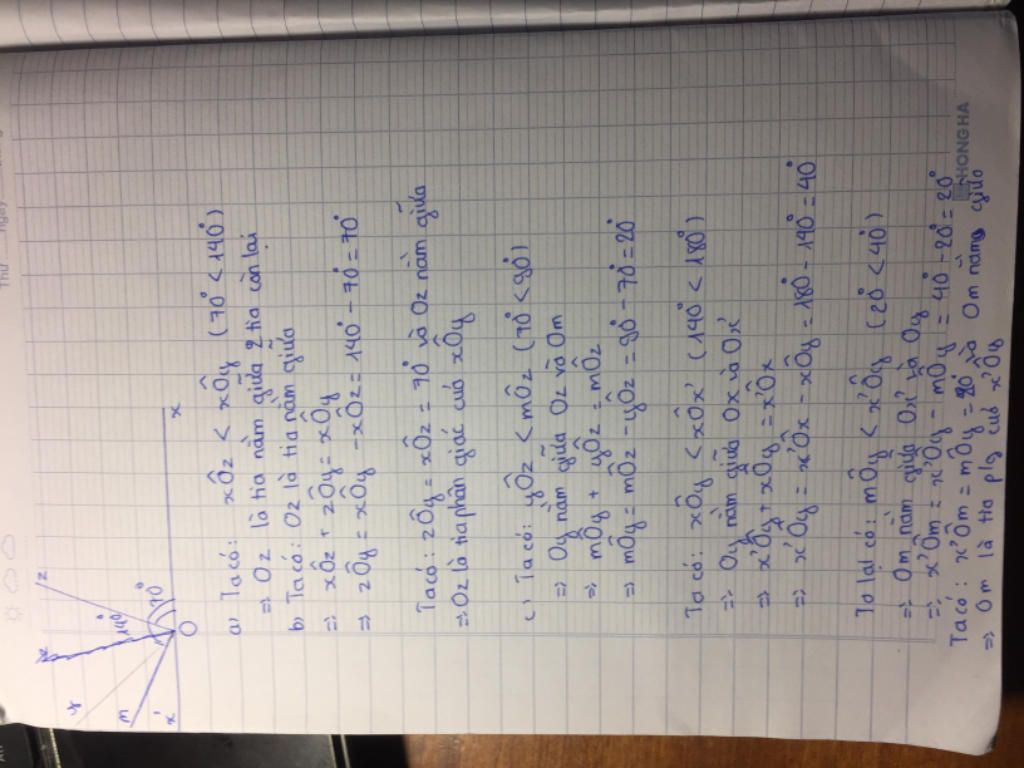 Thứ Ngày
z
y
m
x'
140°
70°
O
x
a) Ta có: xÔz < xÔy (70° < 140°)
=> Oz là tia nằm giữa 2 tia còn lại
b) Ta có: Oz là tia nằm giữa
=> xÔz + zÔy = xÔy
=> zÔy = xÔy - xÔz = 140° - 70° = 70°
Ta có: zÔy = xÔz = 70° và Oz nằm giữa
=> Oz là tia phân giác của xÔy
c) Ta có: yÔz < mÔz (70° < 90°)
=> Oy nằm giữa Oz và Om
=> mÔy + yÔz = mÔz
=> mÔy = mÔz - yÔz = 90° - 70° = 20°
Ta có: xÔy < xÔx' (140° < 180°)
=> Oy nằm giữa Ox và Ox'
=> x'Ôy + xÔy = x'Ôx
=> x'Ôy = x'Ôx - xÔy = 180° - 140° = 40°
Ta lại có: mÔy < x'Ôy (20° < 40°)
=> Om nằm giữa Ox' và Oy
=> x'Ôm = x'Ôy - mÔy = 40° - 20° = 20°
Ta có: x'Ôm = mÔy = 20° và Om nằm giữa
=> Om là tia p/g của x'Ôy
HONG HA